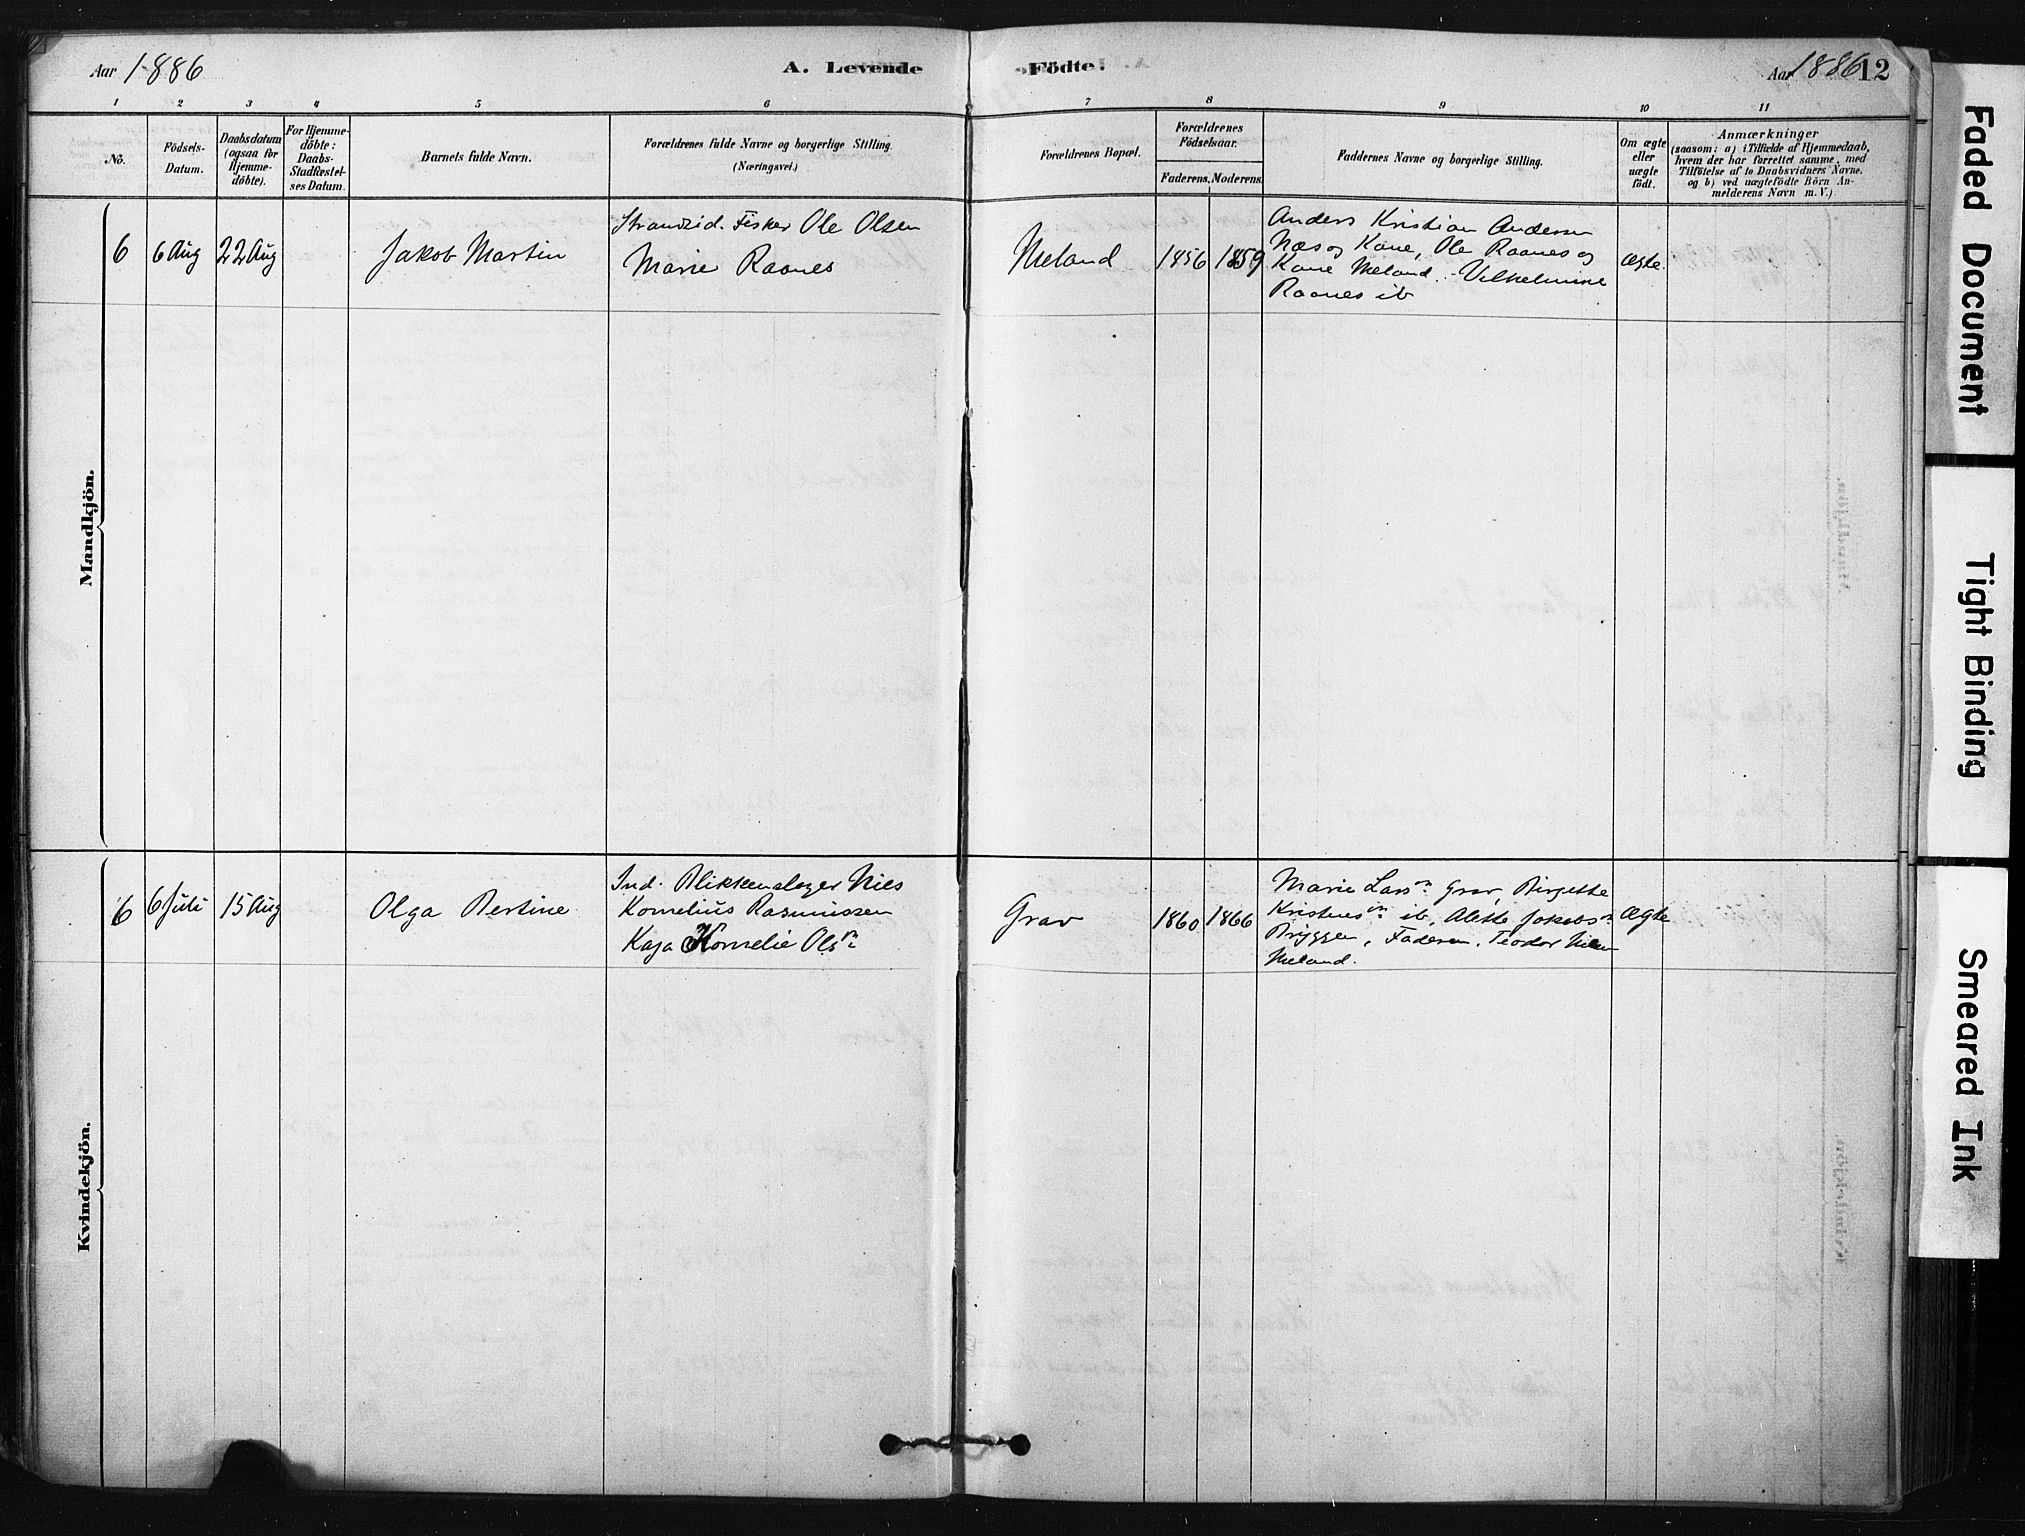 Aar 1886
A. Levende Födte.
Aar 1886 12
1 2 3 4 5 6 7 8 9 10 11
No.
Födsels-
Datum.
Daabsdatum
(ogsaa for
Hjemme-
döbte).
For Hjemme-
döbte:
Daabs-
Stadfæstel-
ses Datum.
Barnets fulde Navn.
Forældrenes fulde Navne og borgerlige Stilling.
(Næringsvei.)
Forældrenes Bopæl.
Forældrenes
Födselsaar.
Faderens. Moderens.
Faddernes Navne og borgerlige Stilling.
Om ægte
eller
uægte
födt.
Anmærkninger
(saasom: a) i Tilfælde af Hjemmedaab,
hvem der har forrettet samme, med
Tilföielse af to Daabsvidners Navne.
og b) ved uægtefödte Börn An-
melderens Navn m. V.)
Mandkjön.
6
6 Aug
22 Aug
Jakob Martin
Strandsid. Fisker Ole Olsen
Marie Raanes
Meland
1856
1859
Anders Kristian Andersen
Næs og Kone, Ole Raanes og
Kone Meland. Vilhelmine
Raanes ib
Ægte
Kvindekjön.
6
6 Juli
15 Aug
Olga Bertine
Ind. Blikkenslager Nils
Kornelius Rasmussen
Kaja Kornelie Olsn
Grav
1860
1866
Marie Larsn Grav, Birgitte
Kristensn ib, Jakobsn
Bryggen, Faderen, Teodor
Meland.
Ægte
Faded Document
Tight Binding
Smeared Ink